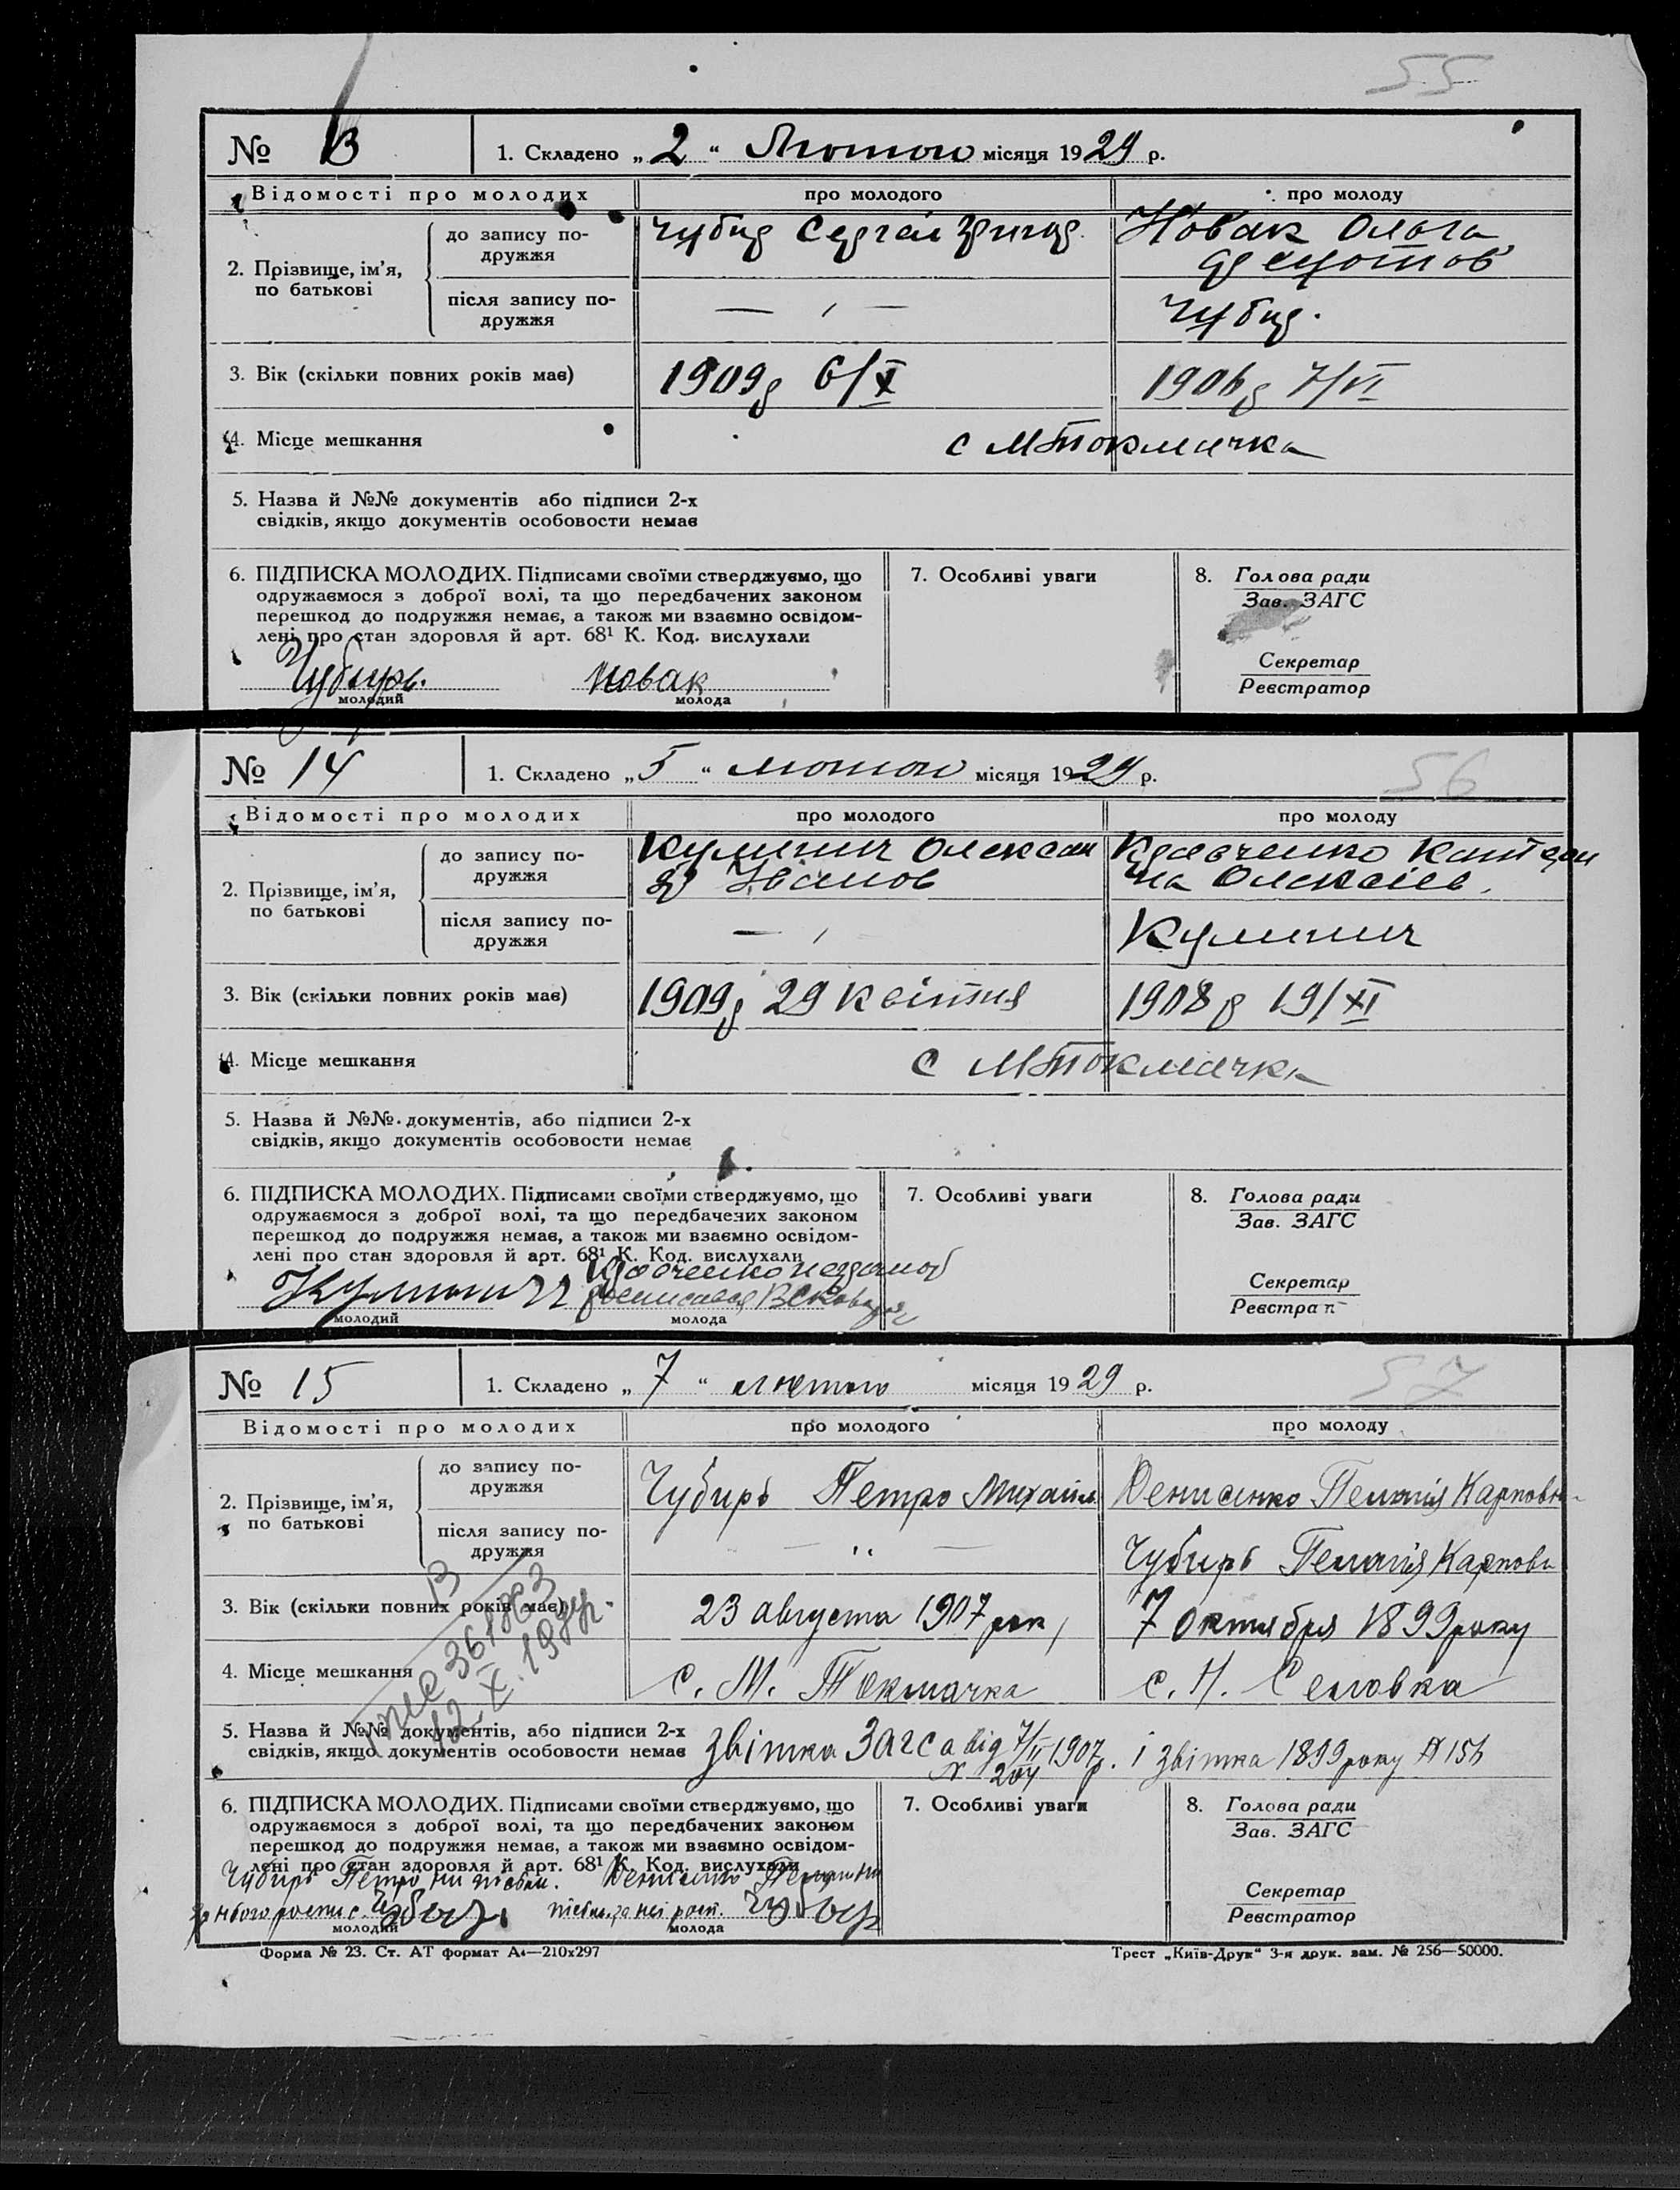 55
№ 13 1. Складено „2“ Лютого місяця 1929 р.
Відомості про молодих про молодого про молоду
2. Прізвище, ім'я, по батькові
до запису по-
дружжя
Чубир Сергій Новак Ольга
після запису по-
дружжя
— ‚ — Чубир.
3. Вік (скільки повних років має) 1909р 6/X 1906р 7/VI
4. Місце мешкання с МТокмачка
5. Назва й №№ документів або підписи 2-х
свідків, якщо документів особовости немає
6. ПІДПИСКА МОЛОДИХ. Підписами своїми стверджуємо, що
одружаємося з доброї волі, та що передбачених законом
перешкод до подружжя немає, а також ми взаємно освідом-
лені про стан здоровля й арт. 68¹ К. Код. вислухали
Чубирь. Новак
молодий молода
7. Особливі уваги
8. Голова ради
Зав. ЗАГС
Секретар
Реєстратор
56
№ 14 1. Складено „5“ лютого місяця 1929 р.
Відомості про молодих про молодого про молоду
2. Прізвище, ім'я, по батькові
до запису по-
дружжя
Кулинич Олексан Кравченко Катери
др Іванов на Олексіїв.
після запису по-
дружжя
— ‚ Кулинич
3. Вік (скільки повних років має) 1909р 29 Квітня 1908р 19/XI
4. Місце мешкання с МТокмачка
5. Назва й №№ документів, або підписи 2-х
свідків, якщо документів особовости немає
6. ПІДПИСКА МОЛОДИХ. Підписами своїми стверджуємо, що
одружаємося з доброї волі, та що передбачених законом
перешкод до подружжя немає, а також ми взаємно освідом-
лені про стан здоровля й арт. 68¹ К. Код. вислухали
Кравченко
Кулинич
молодий молода
7. Особливі уваги
8. Голова ради
Зав. ЗАГС
Секретар
Реєстра
57
№ 15 1. Складено „7“ лютого місяця 1929 р.
Відомості про молодих про молодого про молоду
2. Прізвище, ім'я, по батькові
до запису по-
дружжя
Чубирь Петро Михайл Денисенко Пелагія Карповн
після запису по-
дружжя
— „ — Чубирь Пелагія Карповн
3. Вік (скільки повних років має) 23 августа 1907 рок 7 октября 1899 року
4. Місце мешкання с. М. Токмачка с. Н. Селовка
5. Назва й №№ документів, або підписи 2-х
свідків, якщо документів особовости немає
звітка Загса від 7/II 1907р. і звітка 1899 року № 156
№ 204
6. ПІДПИСКА МОЛОДИХ. Підписами своїми стверджуємо, що
одружаємося з доброї волі, та що передбачених законом
перешкод до подружжя немає, а також ми взаємно освідом-
лені про стан здоровля й арт. 68¹ К. Код. вислухали
Чубирь Петро Денисенко
за нього роспис. Чубирь за неї росп. Чубир
молодий молода
7. Особливі уваги
8. Голова ради
Зав. ЗАГС
Секретар
Реєстратор
Форма № 23. Ст. АТ формат А4—210х297 Трест „Київ-Друк“ 3-я друк. зам. № 256—50000.